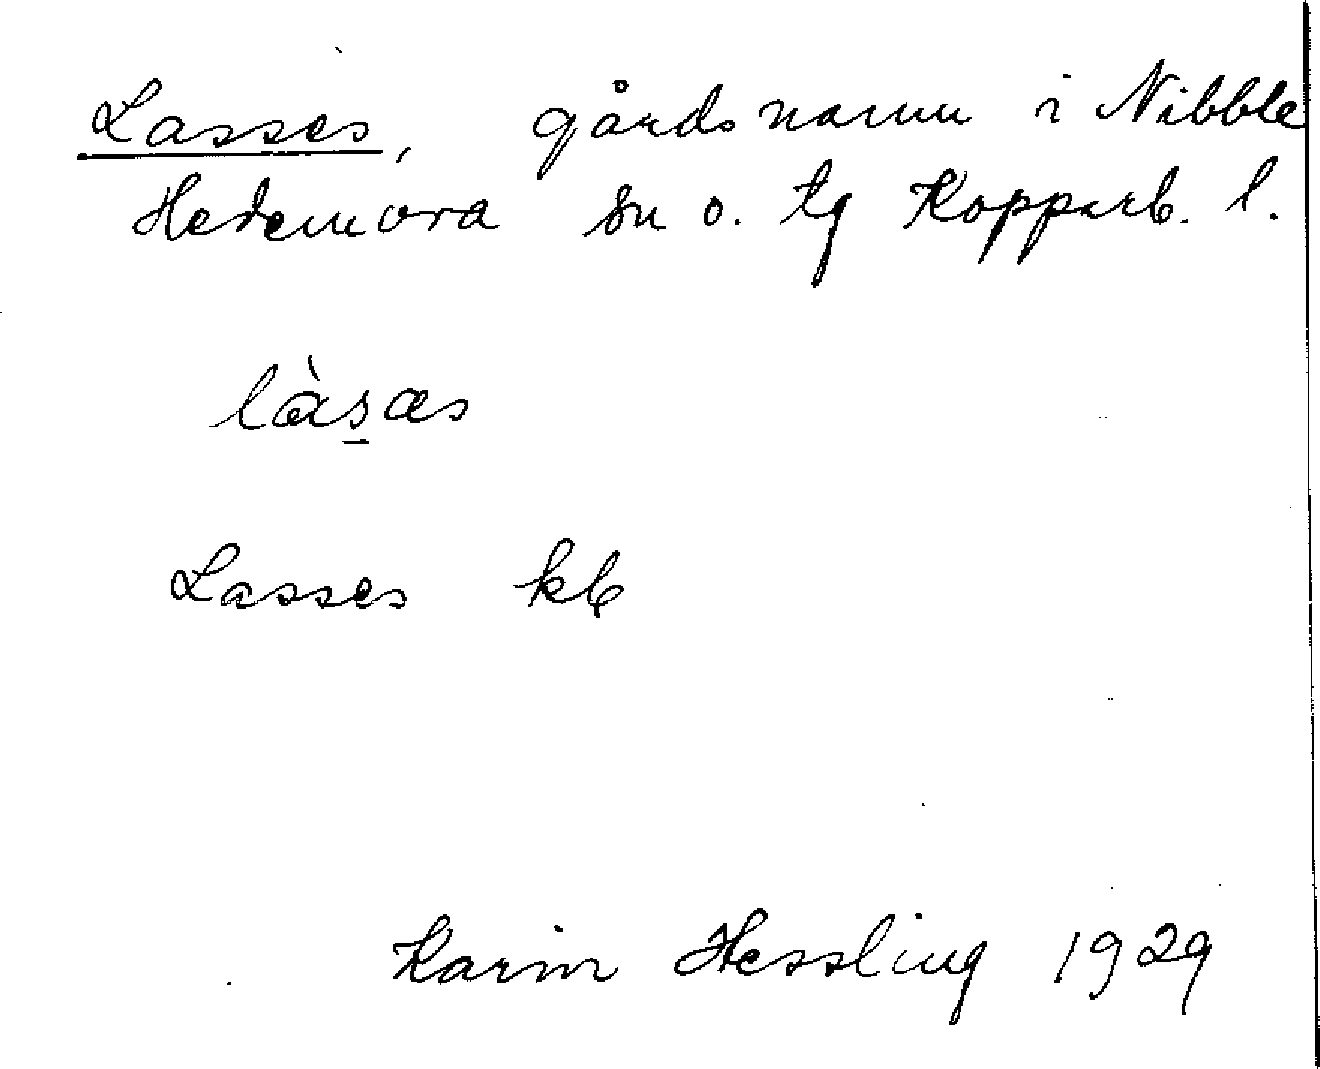 Lasses, gårdsnamn i Nibble
Hedemora sn o. tg Kopparb. l.
làs̠æs
Lasses kb
Karin Hessling 1929